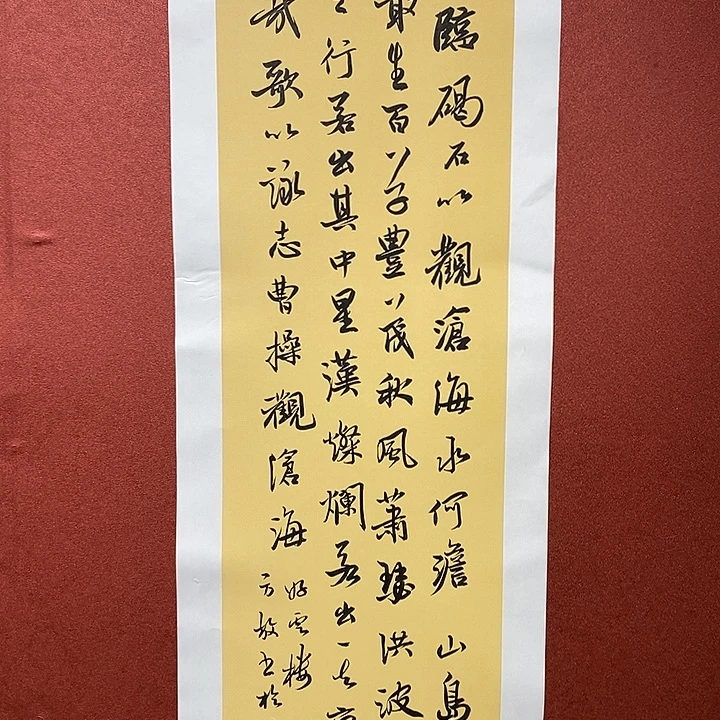 臨碣石以觀滄海水何澹山島
叢生百草豐茂秋風蕭瑟洪波
之行若出其中星漢燦爛若出其
哉歌以詠志曹操觀滄海
好雲樓
方放书於